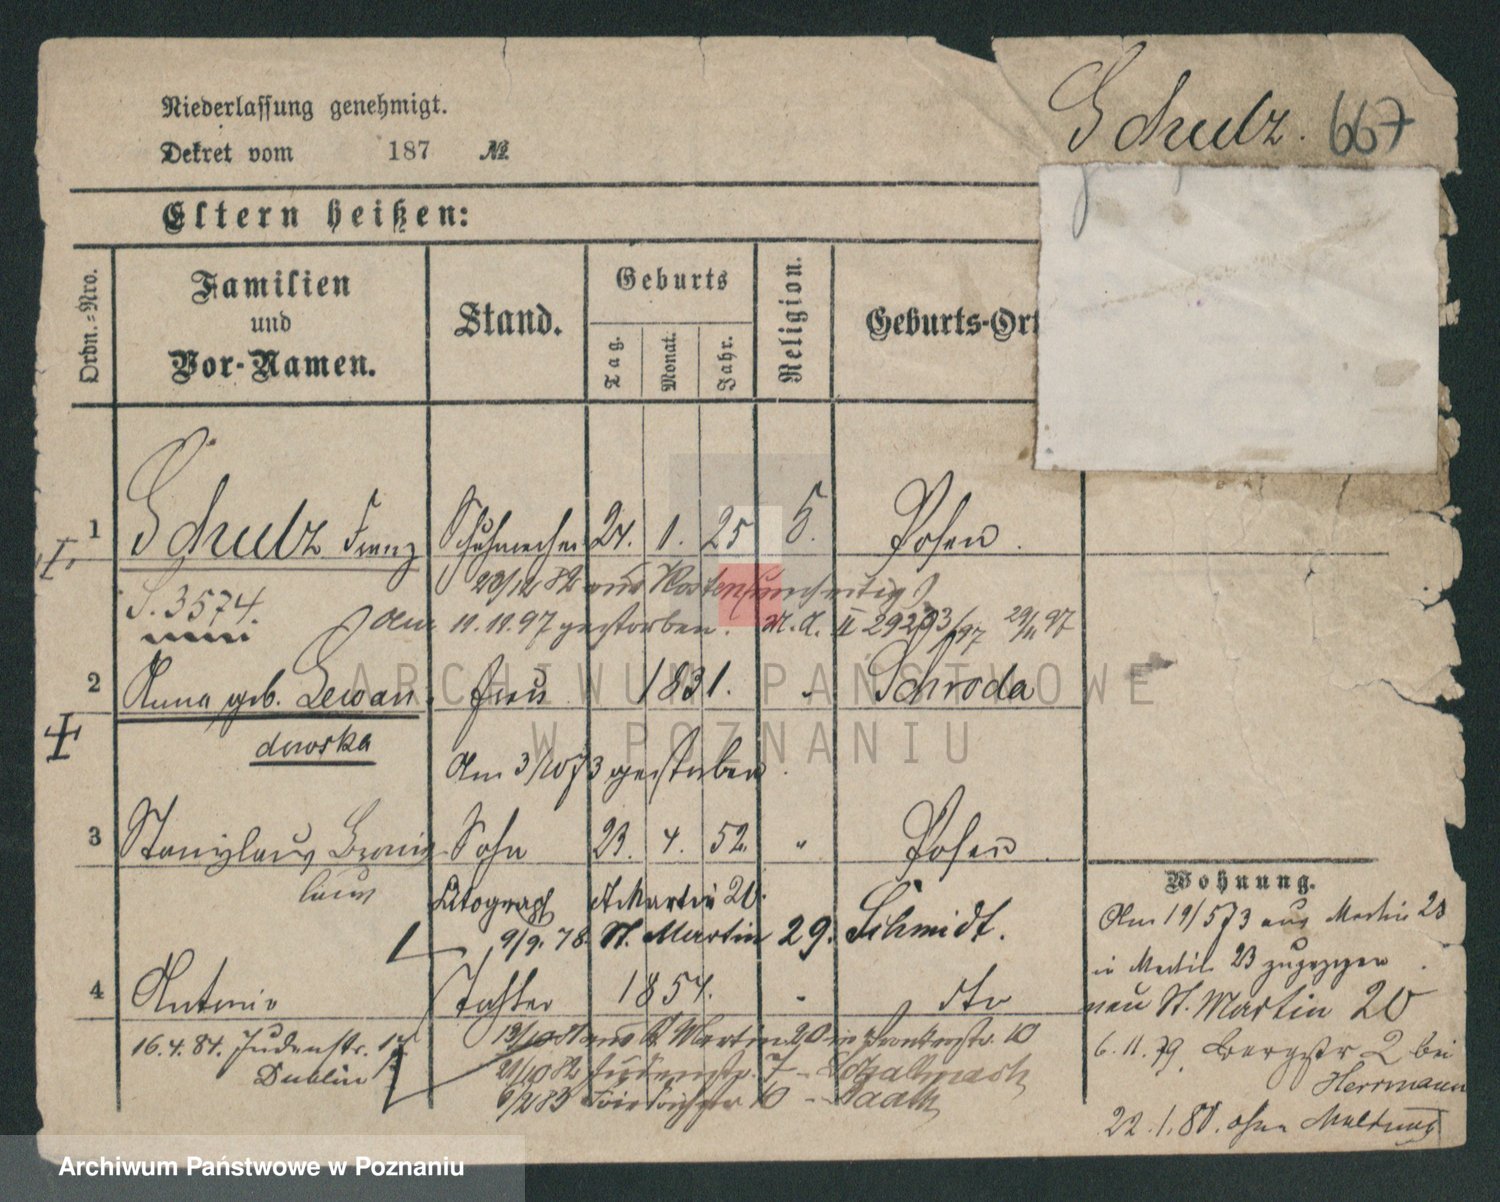 Schulz. 667
Niederlassung genehmigt.
Dekret vom 187 №
Eltern heißen:
Ordn.-Nro.
Familien
und
Vor-Namen.
Stand.
Geburts
Tag.
Monat.
Jahr.
Religion.
Geburts-Ort
1 Schulz Franz Schuhmacher 24. 1. 25 Posen.
S. 3574.
23/12 82 aus Kosten
Am 11.11.97 gestorben. II 29293/97 29/11 97
2 Anna geb. Lewan Frau 1831. " Schroda
dowska
Am 3/10 73 gestorben.
3 Stanislaus Bronis Sohn 23. 4. 52. " Posen.
laus
Litograph St Martin 20.
9/9. 78. St. Martin 29. Schmidt.
4 Antonie Tochter 1854. " dto
16.4.84. Judenstr.
Dublin
St. Martin 20 10
21/10 82 Judenstr. 7
6/2 83 10
Wohnung.
Am 19/5 73 aus Martin 23
in Martin 23 zugezogen
neu St. Martin 20
6.11.79. Bergstr 2 bei
Herrmann
22.1.80. ohne Meldung
ARCHIWUM PAŃSTWOWE
W POZNANIU
Archiwum Państwowe w Poznaniu